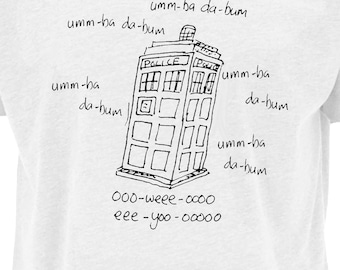 umm-ba da-bum
umm-ba da-bum
POLICE
umm-ba
da-bum
umm-ba
da-bum
umm-ba
da-bum
ooo-weee-oooo
eee-yoo-ooooo